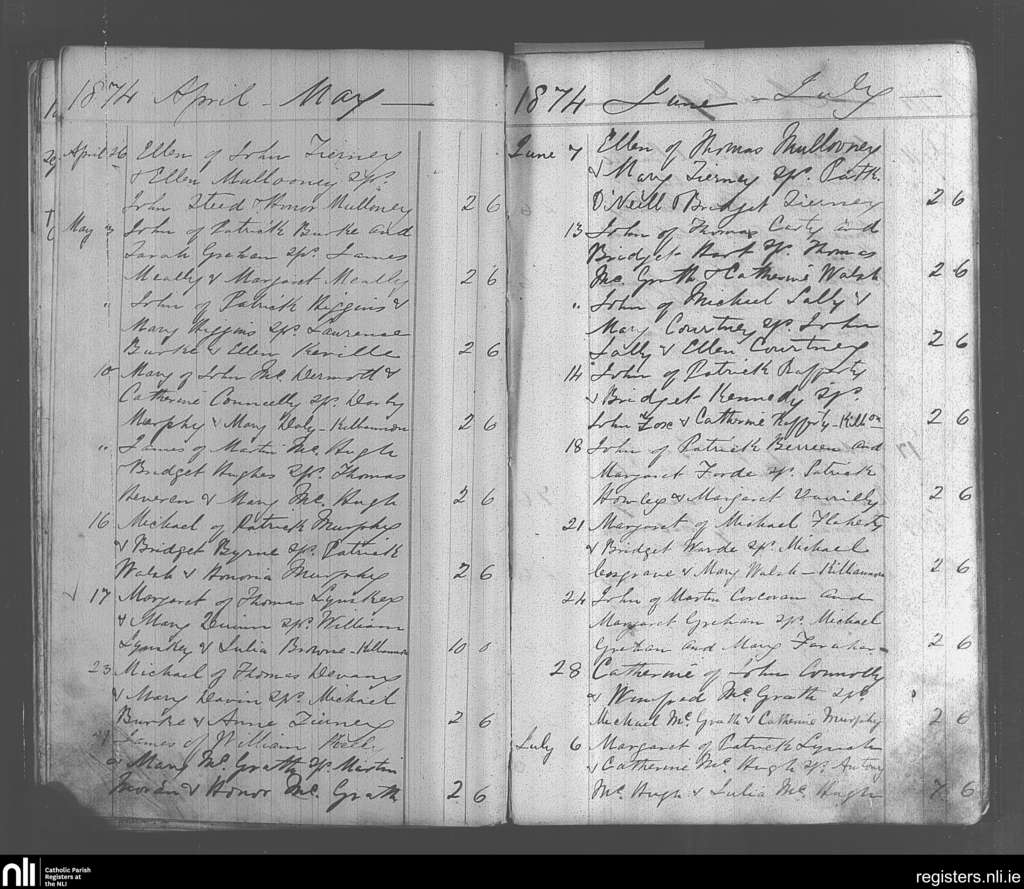 1874 April - May —
April 26 Ellen of John Tierney
& Ellen Mullooney sps.
John Steed & Honor Mulloney 2 6
May 3 John of Patrick Burke and
Sarah Grehan sps. James
Meally & Margaret Meally 2 6
" John of Patrick Higgins &
Mary Higgins sps. Laurence
Burke & Ellen Keville 2 6
10 Mary of John McDermott &
Catherine Connolly sps. Darby
Murphy & Mary Daly - Killannon 2 6
" James of Martin McHugh
& Bridget Hughes sps. Thomas
& Mary McHugh 2 6
16 Michael of Patrick Murphy
& Bridget Byrne sps. Patrick
Walsh & Honoria Murphy 2 6
17 Margaret of Thomas Lynskey
& Mary Quinn sps. William
Lynskey & Julia Browne - Killannon 10 0
23 Michael of Thomas Devany
& Mary Davin sps. Michael
Burke & Anne Tierney 2 6
James of William Kelly
& Mary McGrath sps. Martin
Moran & Honor McGrath 2 6
1874 June - July —
June 7 Ellen of Thomas Mullooney
& Mary Tierney sps. Patk.
O'Neill & Bridget Tierney 2 6
13 John of Thomas Carty and
Bridget Hart sps. Thomas
McGrath & Catherine Walsh 2 6
" John of Michael Lally &
Mary Courtney sps. John
Lally & Ellen Courtney 2 6
14 John of Patrick Rafferty
& Bridget Kennedy sps.
John Fox & Catherine Rafferty - Killon 2 6
18 John of Patrick Berreen and
Margaret Forde sps. Patrick
Howley & Margaret 2 6
21 Margaret of Michael Flaherty
& Bridget Warde sps. Michael
Cosgrave & Mary Walsh - Killannon 2 6
24 John of Martin Corcoran and
Margaret Grehan sps. Michael
Grehan and Mary Faraher - 2 6
28 Catherine of John Connolly
& Winifred McGrath sps.
Michael McGrath & Catherine Murphy 2 6
July 6 Margaret of Patrick Lynch
& Catherine McHugh sps. Antony
McHugh & Julia McHugh 6
nli Catholic Parish
Registers at
the NLI
registers.nli.ie